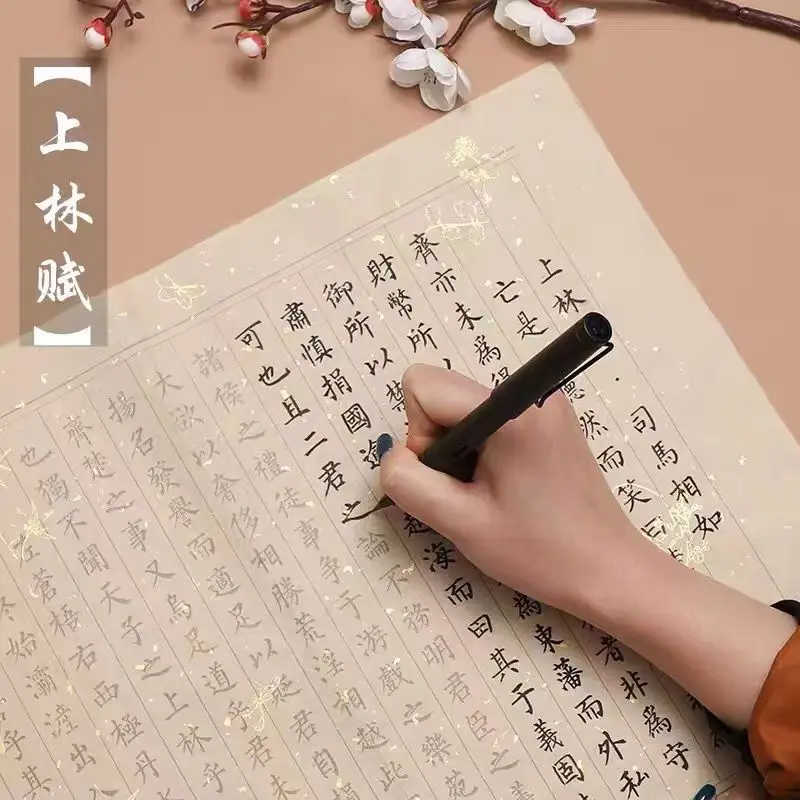 【上林賦】
上林 · 司馬相如
亡是 德然而笑曰
齊亦未為得 者非為守
財幣所以 為東藩而外私
御所以禁
肅慎捐國逾 越海而田其于義固
可也且二君之論不務明君臣之
諸侯之禮徒事爭于游戲之樂苑
大欲以奢侈相勝荒淫相越此
揚名發譽而適足以貶君自
齊楚之事又烏足道乎君未
也獨不聞天子之上林乎
左蒼梧右西極丹
終始灞滻出
乎其